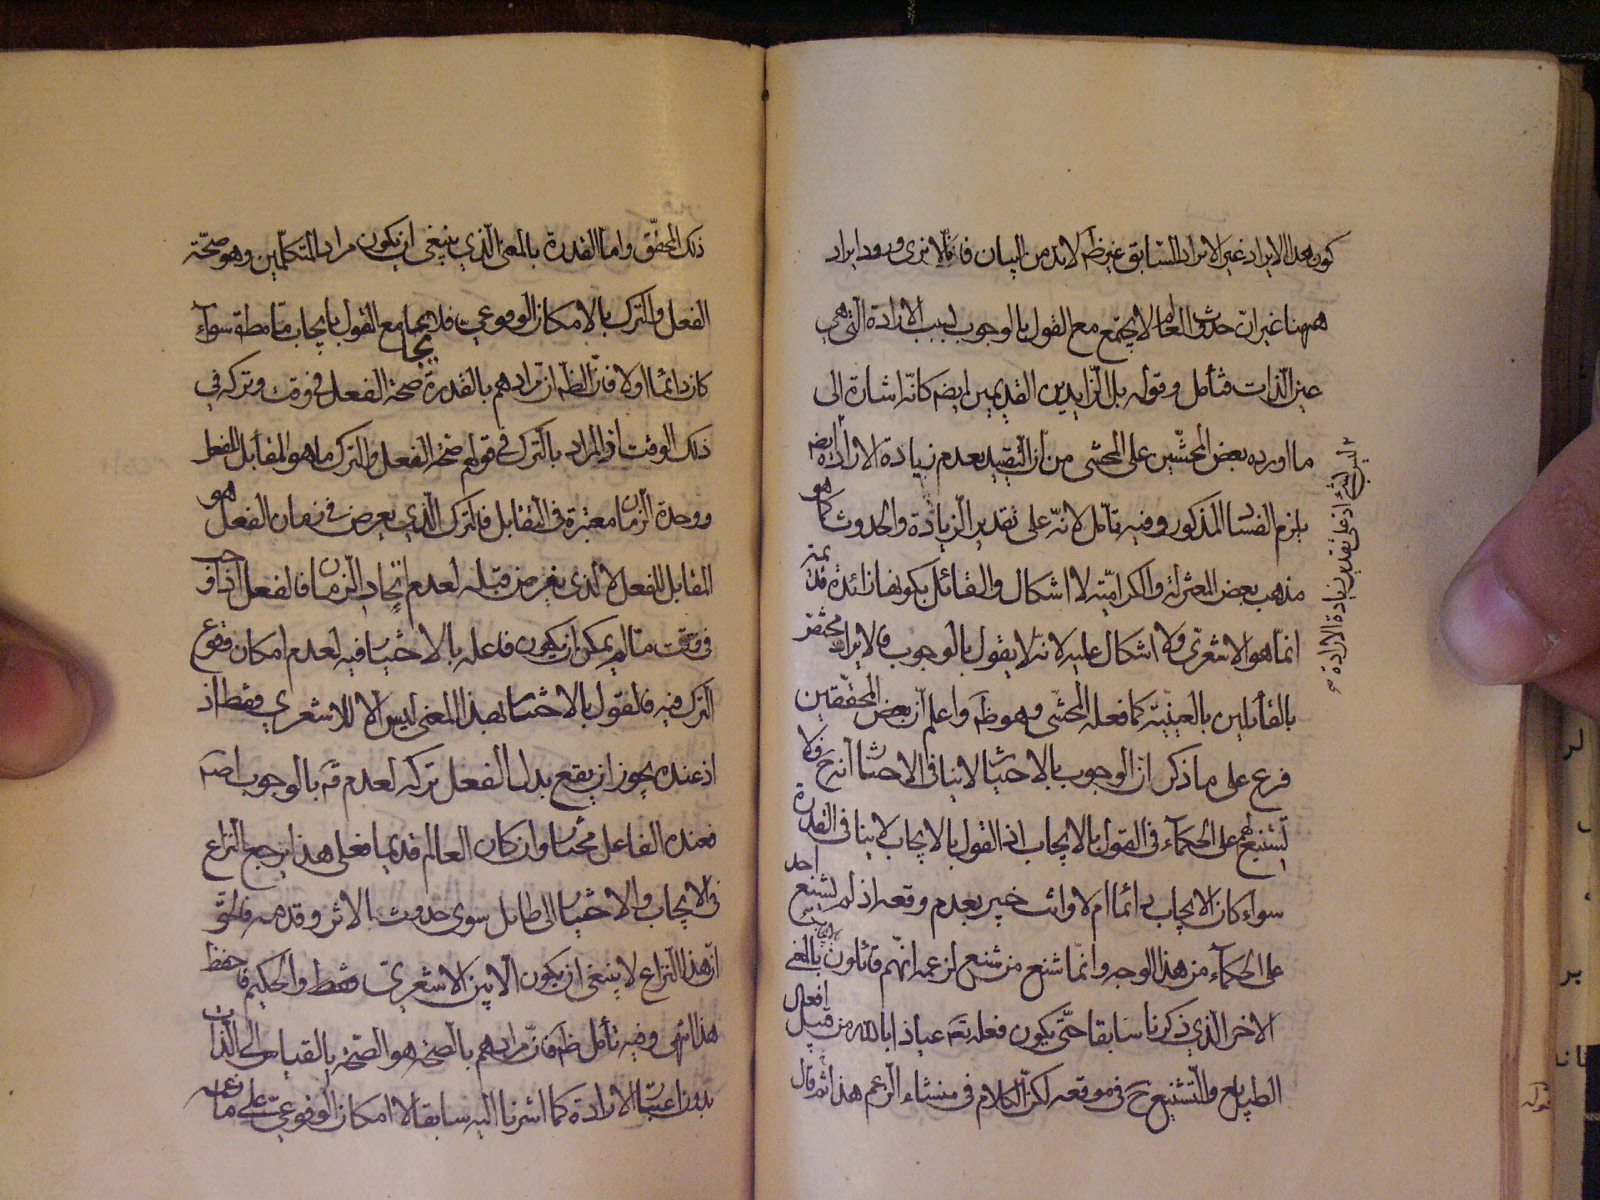 كون هذا الايراد غير الايراد السابق غير ظم لابد من البيان فانا لا نرى ورود ايراد
ههنا غير ان حدوث العالم لا يجتمع مع القول بالوجوب بسبب الارادة التى هى
عين الذات فتأمل وقوله بل الزايدين القديمين ايضه كانّه اشارة الى
ما اورده بعض المحشّين على المحشى من ان التقييد بعدم زيادة الارادة ايضه
يلزم الفساد المذكور وفيه تأمل لانّه على تقدير الزيادة والحدوث كما هو
مذهب بعض المعتزلة والكرامّية لا اشكال والقائل بكونها زائدة قديمة
انما هو الاشعرىّ ولا اشكال عليه لانه لا يقول بالوجوب فالايراد مختصّ
بالقايلين بالعينيّة كما فعله المحشى وهو ظم واعلم انّ بعض المحققين
فرع على ما ذكر ان الوجوب بالاختيار لا ينافى الاختيار انه ح فلا
تشنيع لهم على الحكمآء فى القول بالايجاب اذ القول بالايجاب لا ينافى القدرة
سواء كان الايجاب دائما ام لا وانت خبير بعدم وقعه اذ لم يشنع احد
على الحكمآء من هذا الوجه وانّما شنع من شنع لزعمه انّهم قائلون بالايجاب بالمعنى
الاخر الذي ذكرنا سابقا حتّى يكون فعله تعم عياذا بالله من قبيل افعال
الطبايع والتشنيع ح فى موقعه لكن الكلام فى منشاء الزعم هذا ثم قال
ليس الشئ اذ على تقدير زيادة الارادة
ذلك المحقّق واما القدرة بالمعنى الّذي ينبغى ان يكون مراد المتكلّمين وهو صحّة
الفعل والترك بالامكان الوقوعى فلا يجامع القول بايجاب مّا مطه سوآء
كان دائما او لا فانّ الظم انّ مرادهم بالقدرة صحة الفعل فى وقت وتركه فى
ذلك الوقت اذ المراد بالترك فى قولهم صحّة الفعل والترك ما هو المقابل للفعل
ووحدة الزمان معتبرة فى التقابل فالترك الّذي يعرض فى زمان الفعل هو
المقابل للفعل لا الذى يعرض قبله لعدم اتحاد الزمان فالفعل اذا وجب
فى وقت مّا لم يمكن ان يكون فاعله بالاختيار فيه لعدم امكان وقوع
الترك فيه فالقول بالاختيار بهذا المعنى ليس الا للاشعري فقط اذ
اذ عنده يجوز ان يقع بدل الفعل تركه لعدم قه بالوجوب اصه
فعنده الفاعل مختار وان كان العالم قديما فعلى هذا يرجع النزاع
فى الايجاب والاختيار الى طايل سوى حدوث الاثر وقدمه فالحقّ
انّ هذا النزاع لا ينبغى ان يكون الا بين الاشعريّ فقط والحكيم فاحفظ
هذا انتهى وفيه تأمل ظم فانّ مرادهم بالصحّة هو الصّحّة بالقياس الى الذات
بدون اعتبار الارادة كما اشرنا اليه سابقا لا امكان الوقوعىّ على ما زعمه